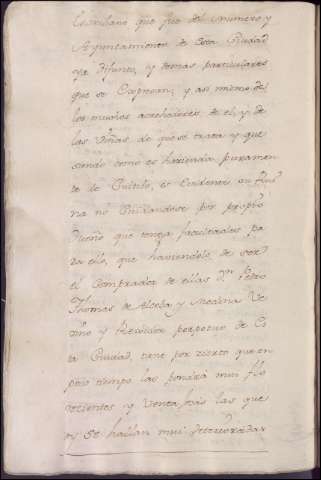 Escribano que fue del numero y
Ayuntamiento de esta Ciudad
ya difunto, y demas particulares
que se Expresan, y asi mismo de
los muchos acrehedores, de el, y de
las Viñas, de que se trata y que
siendo como es hacienda puramen
te de Cultibo, es Evidente su Rui
na no Cuidandose por propio
Dueño que tenga facultades pa
ra ello, que haviendolo de ser
el Comprador de ellas Dn. Pedro
Thomas de Alceda y Medina Ve
zino y Rexidor perpetuo de Es
ta Ciudad, tiene por zierto que en
poco tiempo las pondra mui flo
recientes y Ventajosas las que
oy se hallan mui deterioradas